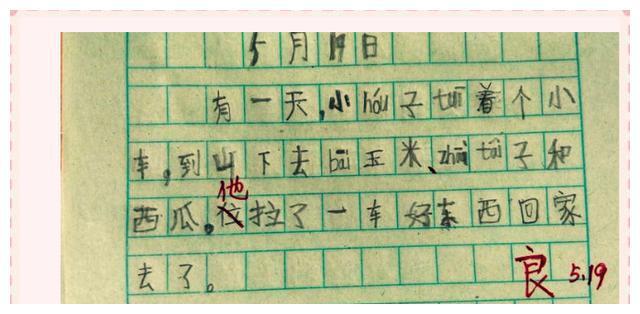 5月19日
有一天,小hóu子tuī着个小
车,到山下去bāi玉米、zhāi táo子和
他
西瓜。拉了一车好东西回家
去了。
良 5.19